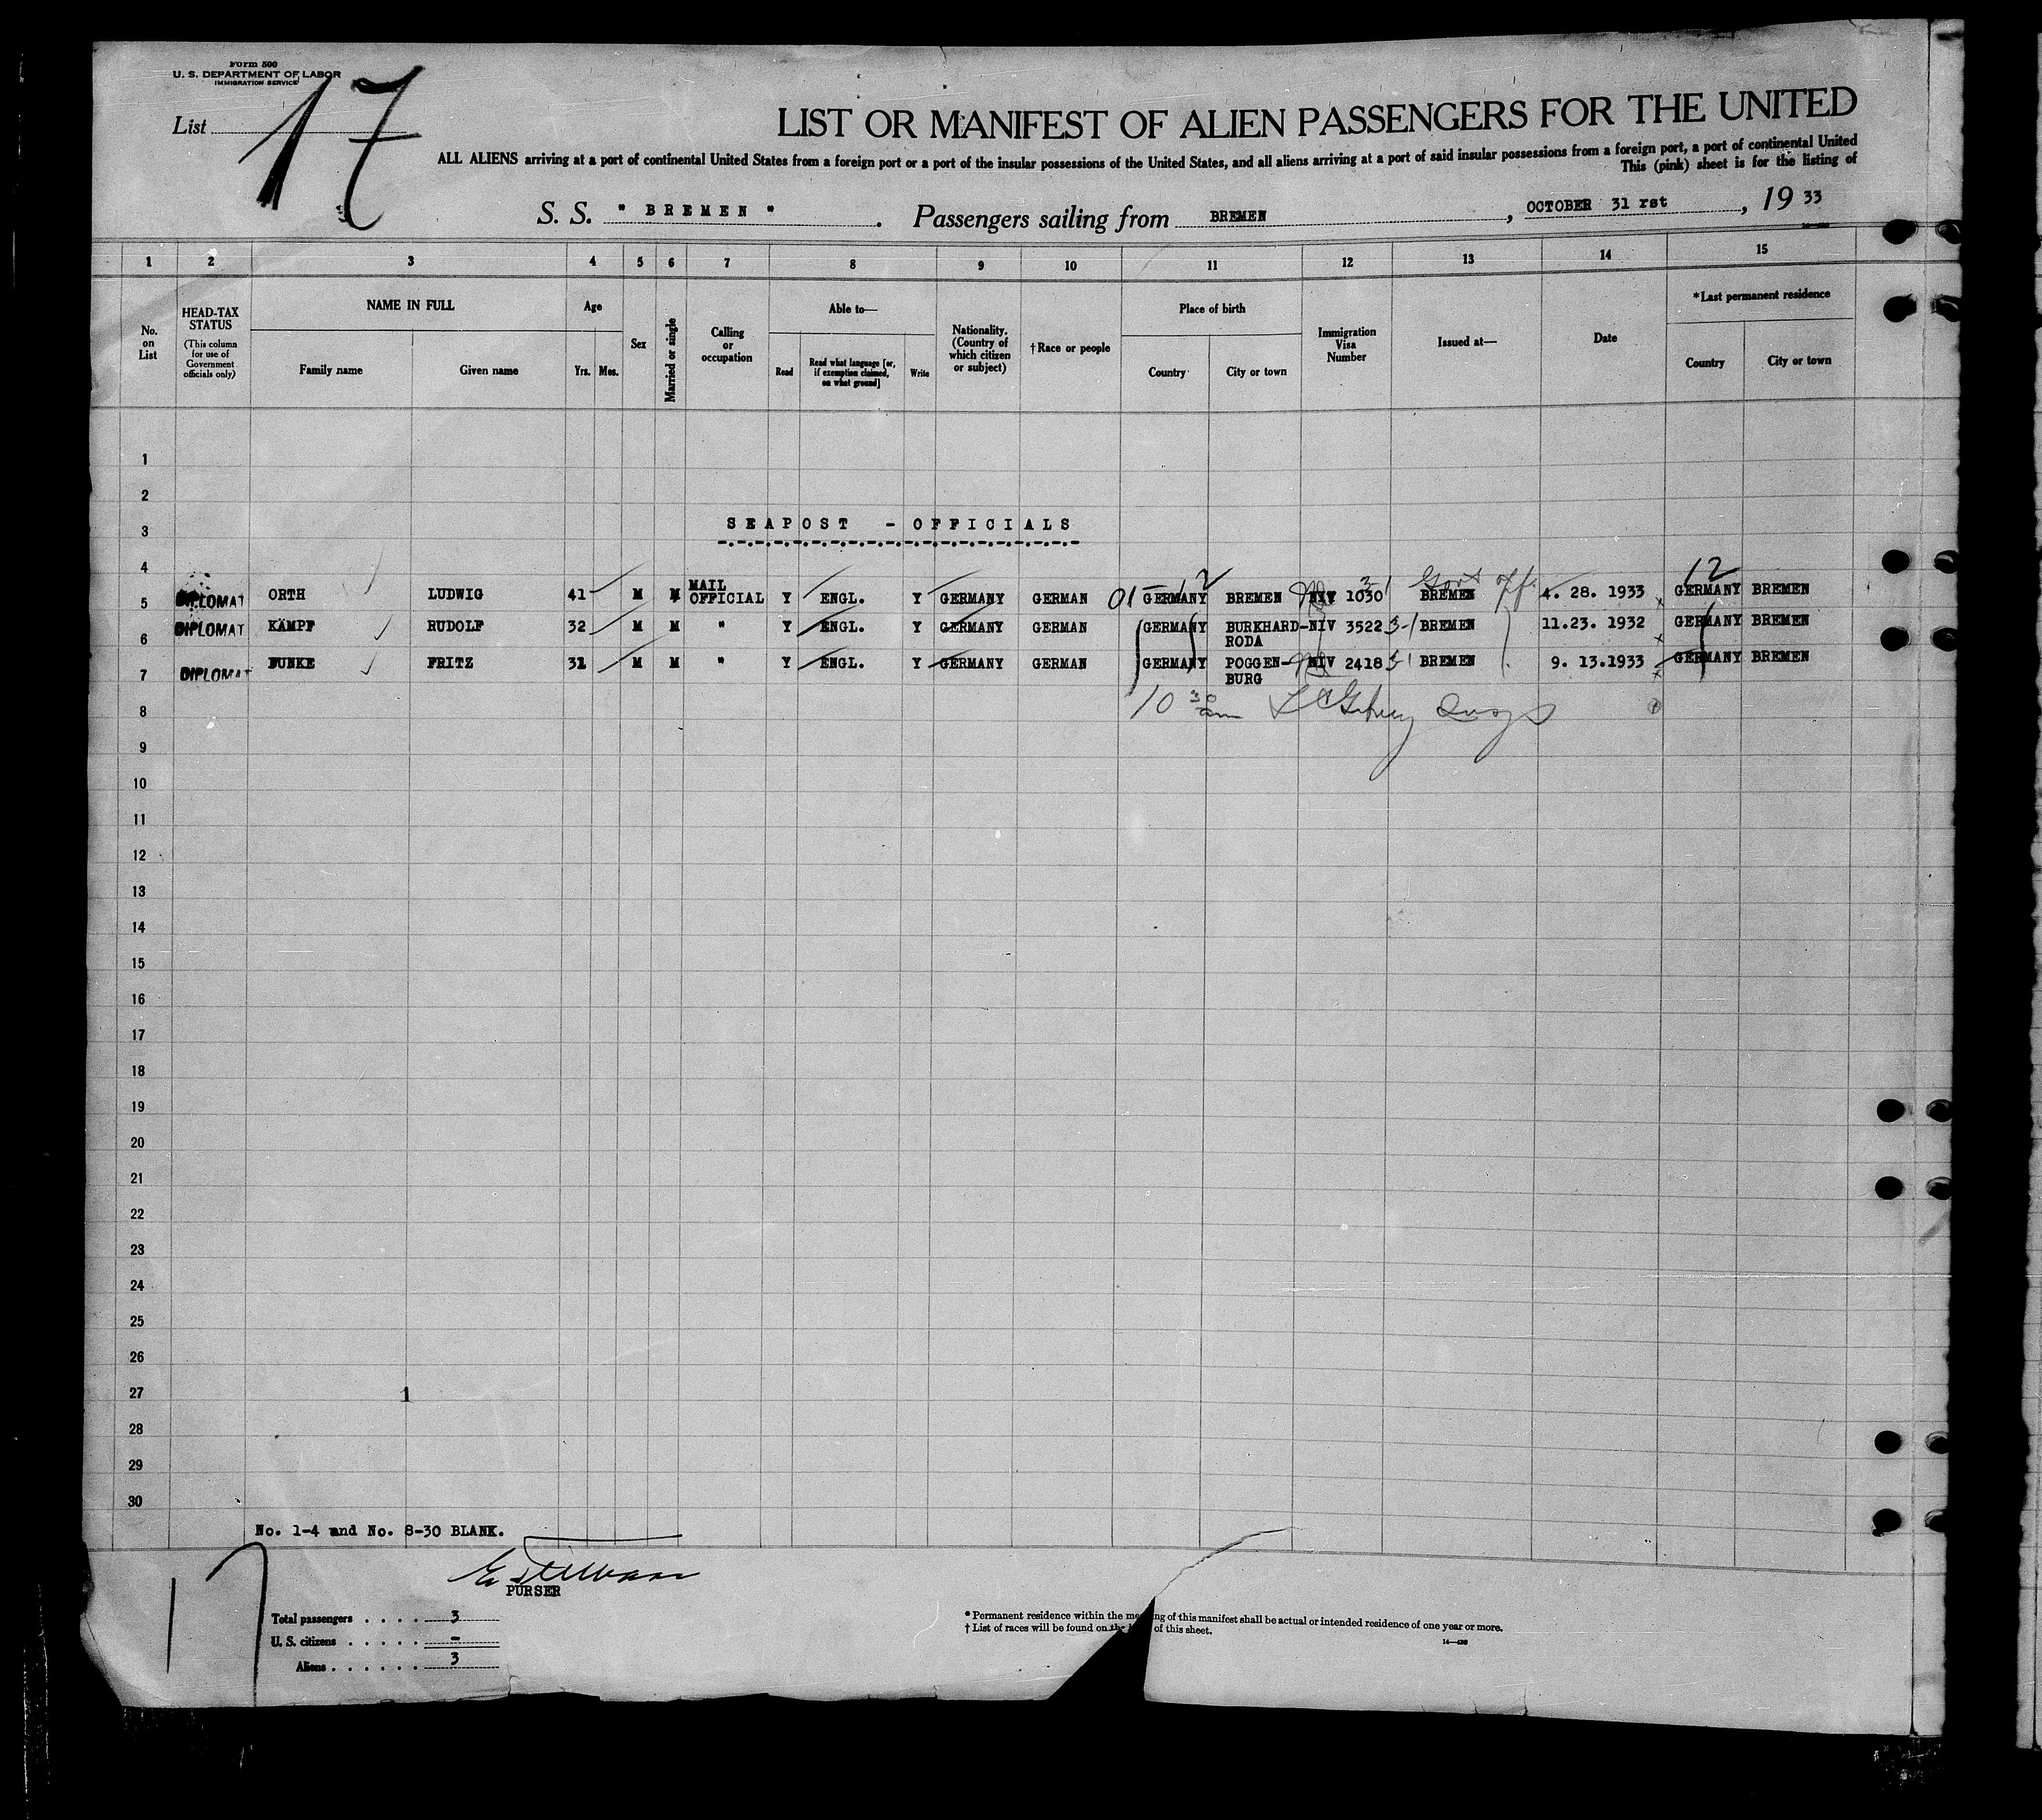 Form 500
U. S. DEPARTMENT OF LABOR
IMMIGRATION SERVICE
List 17
LIST OR MANIFEST OF ALIEN PASSENGERS FOR THE UNITED
ALL ALIENS arriving at a port of continental United States from a foreign port or a port of the insular possessions of the United States, and all aliens arriving at a port of said insular possessions from a foreign port, a port of continental United
This (pink) sheet is for the listing of
S. S. " BREMEN " . Passengers sailing from BREMEN , OCTOBER 31 rst , 19 33
1 2 3 4 5 6 7 8 9 10 11 12 13 14 15
No. on List
HEAD-TAX STATUS (This column for use of Government officials only)
NAME IN FULL
Family name Given name
Age
Yrs. Mos.
Sex
Married or single
Calling or occupation
Able to—
Read Read what language [or, if exemption claimed, on what ground] Write
Nationality. (Country of which citizen or subject)
†Race or people
Place of birth
Country City or town
Immigration Visa Number
Issued at—
Date
*Last permanent residence
Country City or town
1
2
3 SEAPOST - OFFICIALS
4
12 3-1 Govt off. 12
5 DIPLOMAT ORTH LUDWIG 41 M M MAIL OFFICIAL Y ENGL. Y GERMANY GERMAN 01 GERMANY BREMEN NIV 1030 BREMEN 4. 28. 1933 GERMANY BREMEN
6 DIPLOMAT KÄMPF RUDOLF 32 M M " Y ENGL. Y GERMANY GERMAN GERMANY BURKHARD-RODA NIV 3522 3-1 BREMEN 11.23. 1932 GERMANY BREMEN
7 DIPLOMAT FUNKE FRITZ 31 M M " Y ENGL. Y GERMANY GERMAN GERMANY POGGEN-BURG NIV 2418 3-1 BREMEN 9. 13.1933 GERMANY BREMEN
8 10 30 am
9
10
11
12
13
14
15
16
17
18
19
20
21
22
23
24
25
26
27 1
28
29
30
No. 1-4 and No. 8-30 BLANK.
17
PURSER
Total passengers . . . . 3
U. S. citizens . . . . . -
Aliens . . . . . . 3
* Permanent residence within the me ng of this manifest shall be actual or intended residence of one year or more.
† List of races will be found on the of this sheet.
14—430